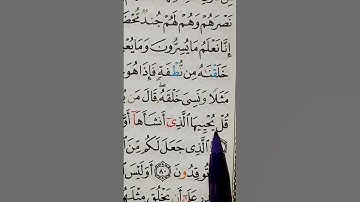 نَصْرَهُمْ وَهُمْ لَهُمْ جُندٌ
إِنَّا نَعْلَمُ مَا يُسِرُّونَ وَمَا
خَلَقْنَٰهُ مِن نُّطْفَةٍ فَإِذَا هُوَ
مَثَلًا وَنَسِىَ خَلْقَهُۥ قَالَ مَن
قُلْ يُحْيِيهَا ٱلَّذِىٓ أَنشَأَهَآ
ٱلَّذِى جَعَلَ لَكُم مِّنَ
تُوقِدُونَ ٨٠ أَوَلَيْسَ
عَلَىٰٓ أَن يَخْلُقَ مِثْلَهُم